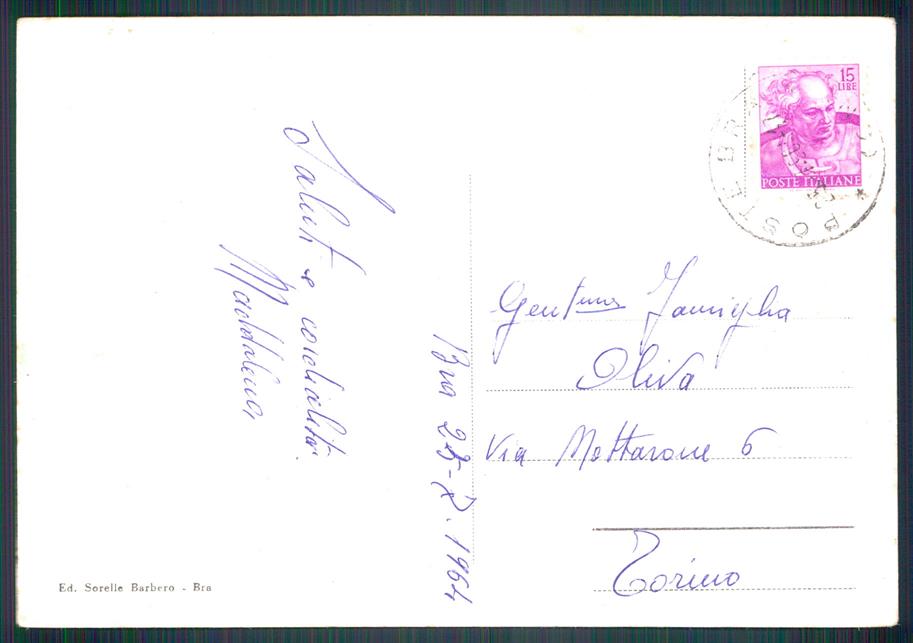 Saluti e cordialità.
Maddalena
Bra 25-7-1964
15
LIRE
POSTE ITALIANE
POSTE BRA
Gent.ma Famiglia
Oliva
Via Mottarone 6
Torino
Ed. Sorelle Barbero - Bra